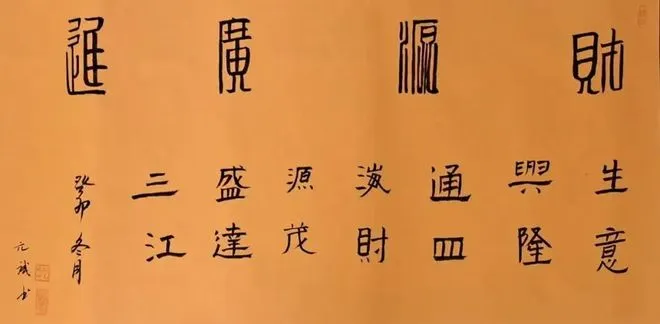 財源廣進
生意
興隆
通四
海財
源茂
盛達
三江
癸卯冬月
元斌书